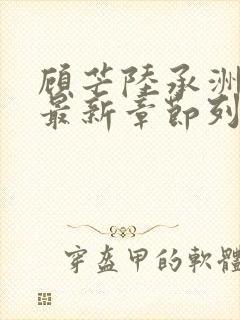 顾芒陸承洲
最新章節列
穿盔甲的軟體